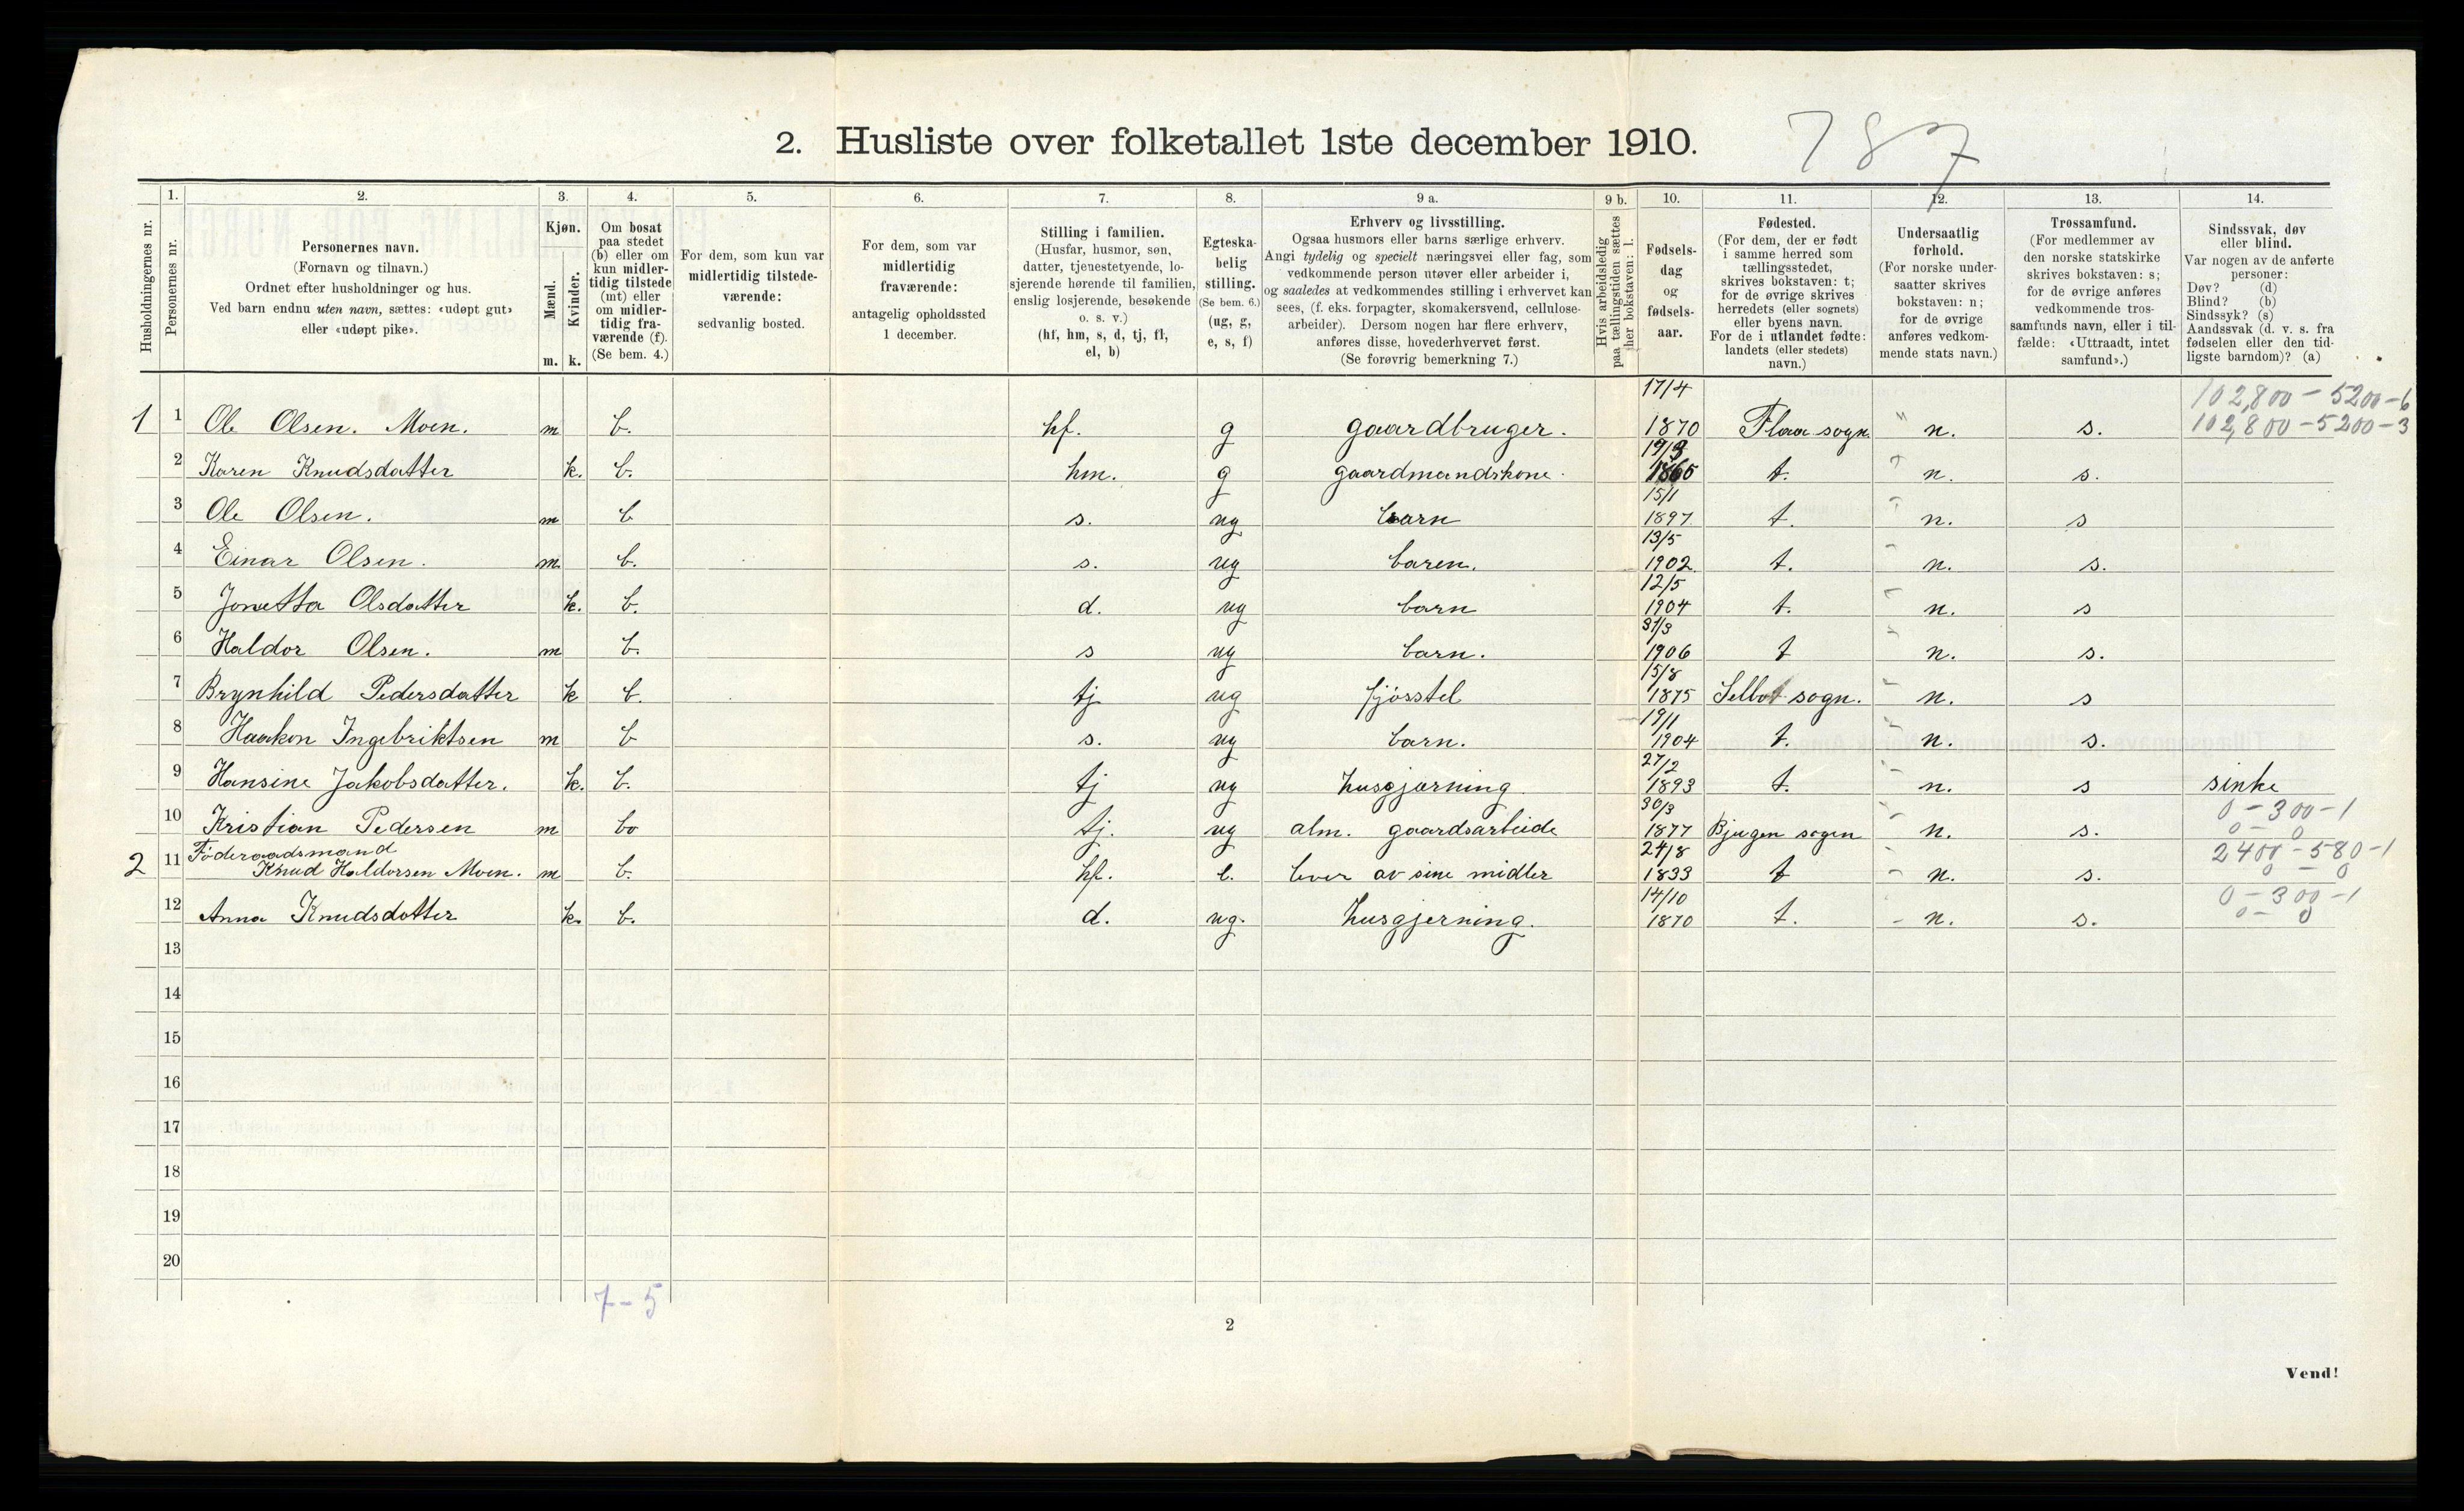 787
2. Husliste over folketallet 1ste december 1910.
Husholdningernes nr.
1.
Personernes nr.
2.
Personernes navn.
(Fornavn og tilnavn.)
Ordnet efter husholdninger og hus.
Ved barn endnu uten navn, sættes: «udøpt gut»
eller «udøpt pike».
3.
Kjøn.
Mænd.
Kvinder.
m. k.
4.
Om bosat
paa stedet
(b) eller om
kun midler-
tidig tilstede
(mt) eller
om midler-
tidig fra-
værende (f).
(Se bem. 4.)
5.
For dem, som kun var
midlertidig tilstede-
værende:
sedvanlig bosted.
6.
For dem, som var
midlertidig
fraværende:
antagelig opholdssted
1 december.
7.
Stilling i familien.
(Husfar, husmor, søn,
datter, tjenestetyende, lo-
sjerende hørende til familien,
enslig losjerende, besøkende
o. s. v.)
(hf, hm, s, d, tj, fl,
el, b)
8.
Egteska-
belig
stilling.
(Se bem. 6.)
(ug, g,
e, s, f)
9 a.
Erhverv og livsstilling.
Ogsaa husmors eller barns særlige erhverv.
Angi tydelig og specielt næringsvei eller fag, som
vedkommende person utøver eller arbeider i,
og saaledes at vedkommendes stilling i erhvervet kan
sees, (f. eks. forpagter, skomakersvend, cellulose-
arbeider). Dersom nogen har flere erhverv,
anføres disse, hovederhvervet først.
(Se forøvrig bemerkning 7.)
9 b.
Hvis arbeidsledig
paa tællingstiden sættes
her bokstaven: l.
10.
Fødsels-
dag
og
fødsels-
aar.
11.
Fødested.
(For dem, der er født
i samme herred som
tællingsstedet,
skrives bokstaven: t;
for de øvrige skrives
herredets (eller sognets)
eller byens navn.
For de i utlandet fødte:
landets (eller stedets)
navn.)
12.
Undersaatlig
forhold.
(For norske under-
saatter skrives
bokstaven: n;
for de øvrige
anføres vedkom-
mende stats navn.)
13.
Trossamfund.
(For medlemmer av
den norske statskirke
skrives bokstaven: s;
for de øvrige anføres
vedkommende tros-
samfunds navn, eller i til-
fælde: «Uttraadt, intet
samfund».)
14.
Sindssvak, døv
eller blind.
Var nogen av de anførte
personer:
Døv? (d)
Blind? (b)
Sindssyk? (s)
Aandssvak (d. v. s. fra
fødselen eller den tid-
ligste barndom)? (a)
17/4 102,800 - 5200 - 6
1 1 Ole Olsen. Moen. m b. hf. g gaardbruger. 1870 Flaa sogn. n. s. 102,800 - 5200 - 3
19/3
2 Karen Knudsdatter k. b. hm. g gaardmandskone. 1865 t. n. s.
15/1
3 Ole Olsen. m b s. ug barn 1897 t. n. s
13/5
4 Einar Olsen. m. b. s. ug baren. 1902. t. n. s.
12/5
5 Jonetta Olsdatter k. b. d. ug barn 1904 t. n. s
31/3
6 Haldor Olsen. m b. s ug barn. 1906 t n. s.
15/8
7 Brynhild Pedersdatter k b. tj ug fjósstel 1875 Selbo sogn. n. s
19/1
8 Haakon Ingebriktsen m b s. ug barn. 1904 t. n. s.
27/2
9 Hansine Jakobsdatter. k. b. tj ug husgjørning 1893 t. n. s sinke
30/3 0 - 300 - 1
10 Kristian Pedersen m bo tj. ug alm. gaardsarbeide 1877 Bjugen sogen n. s. 0 - 0
Föderaadsmand 24/8 2400 - 580 - 1
2 11 Knud Haldorsen Moen. m b. hf. e. lever av sine midler 1833 t n. s. 0 - 0
14/10 0 - 300 - 1
12 Anna Knudsdotter k. b. d. ug. husgjerning. 1870 t. n. s. 0 - 0
13
14
15
16
17
18
19
20
7 - 5
2
Vend!